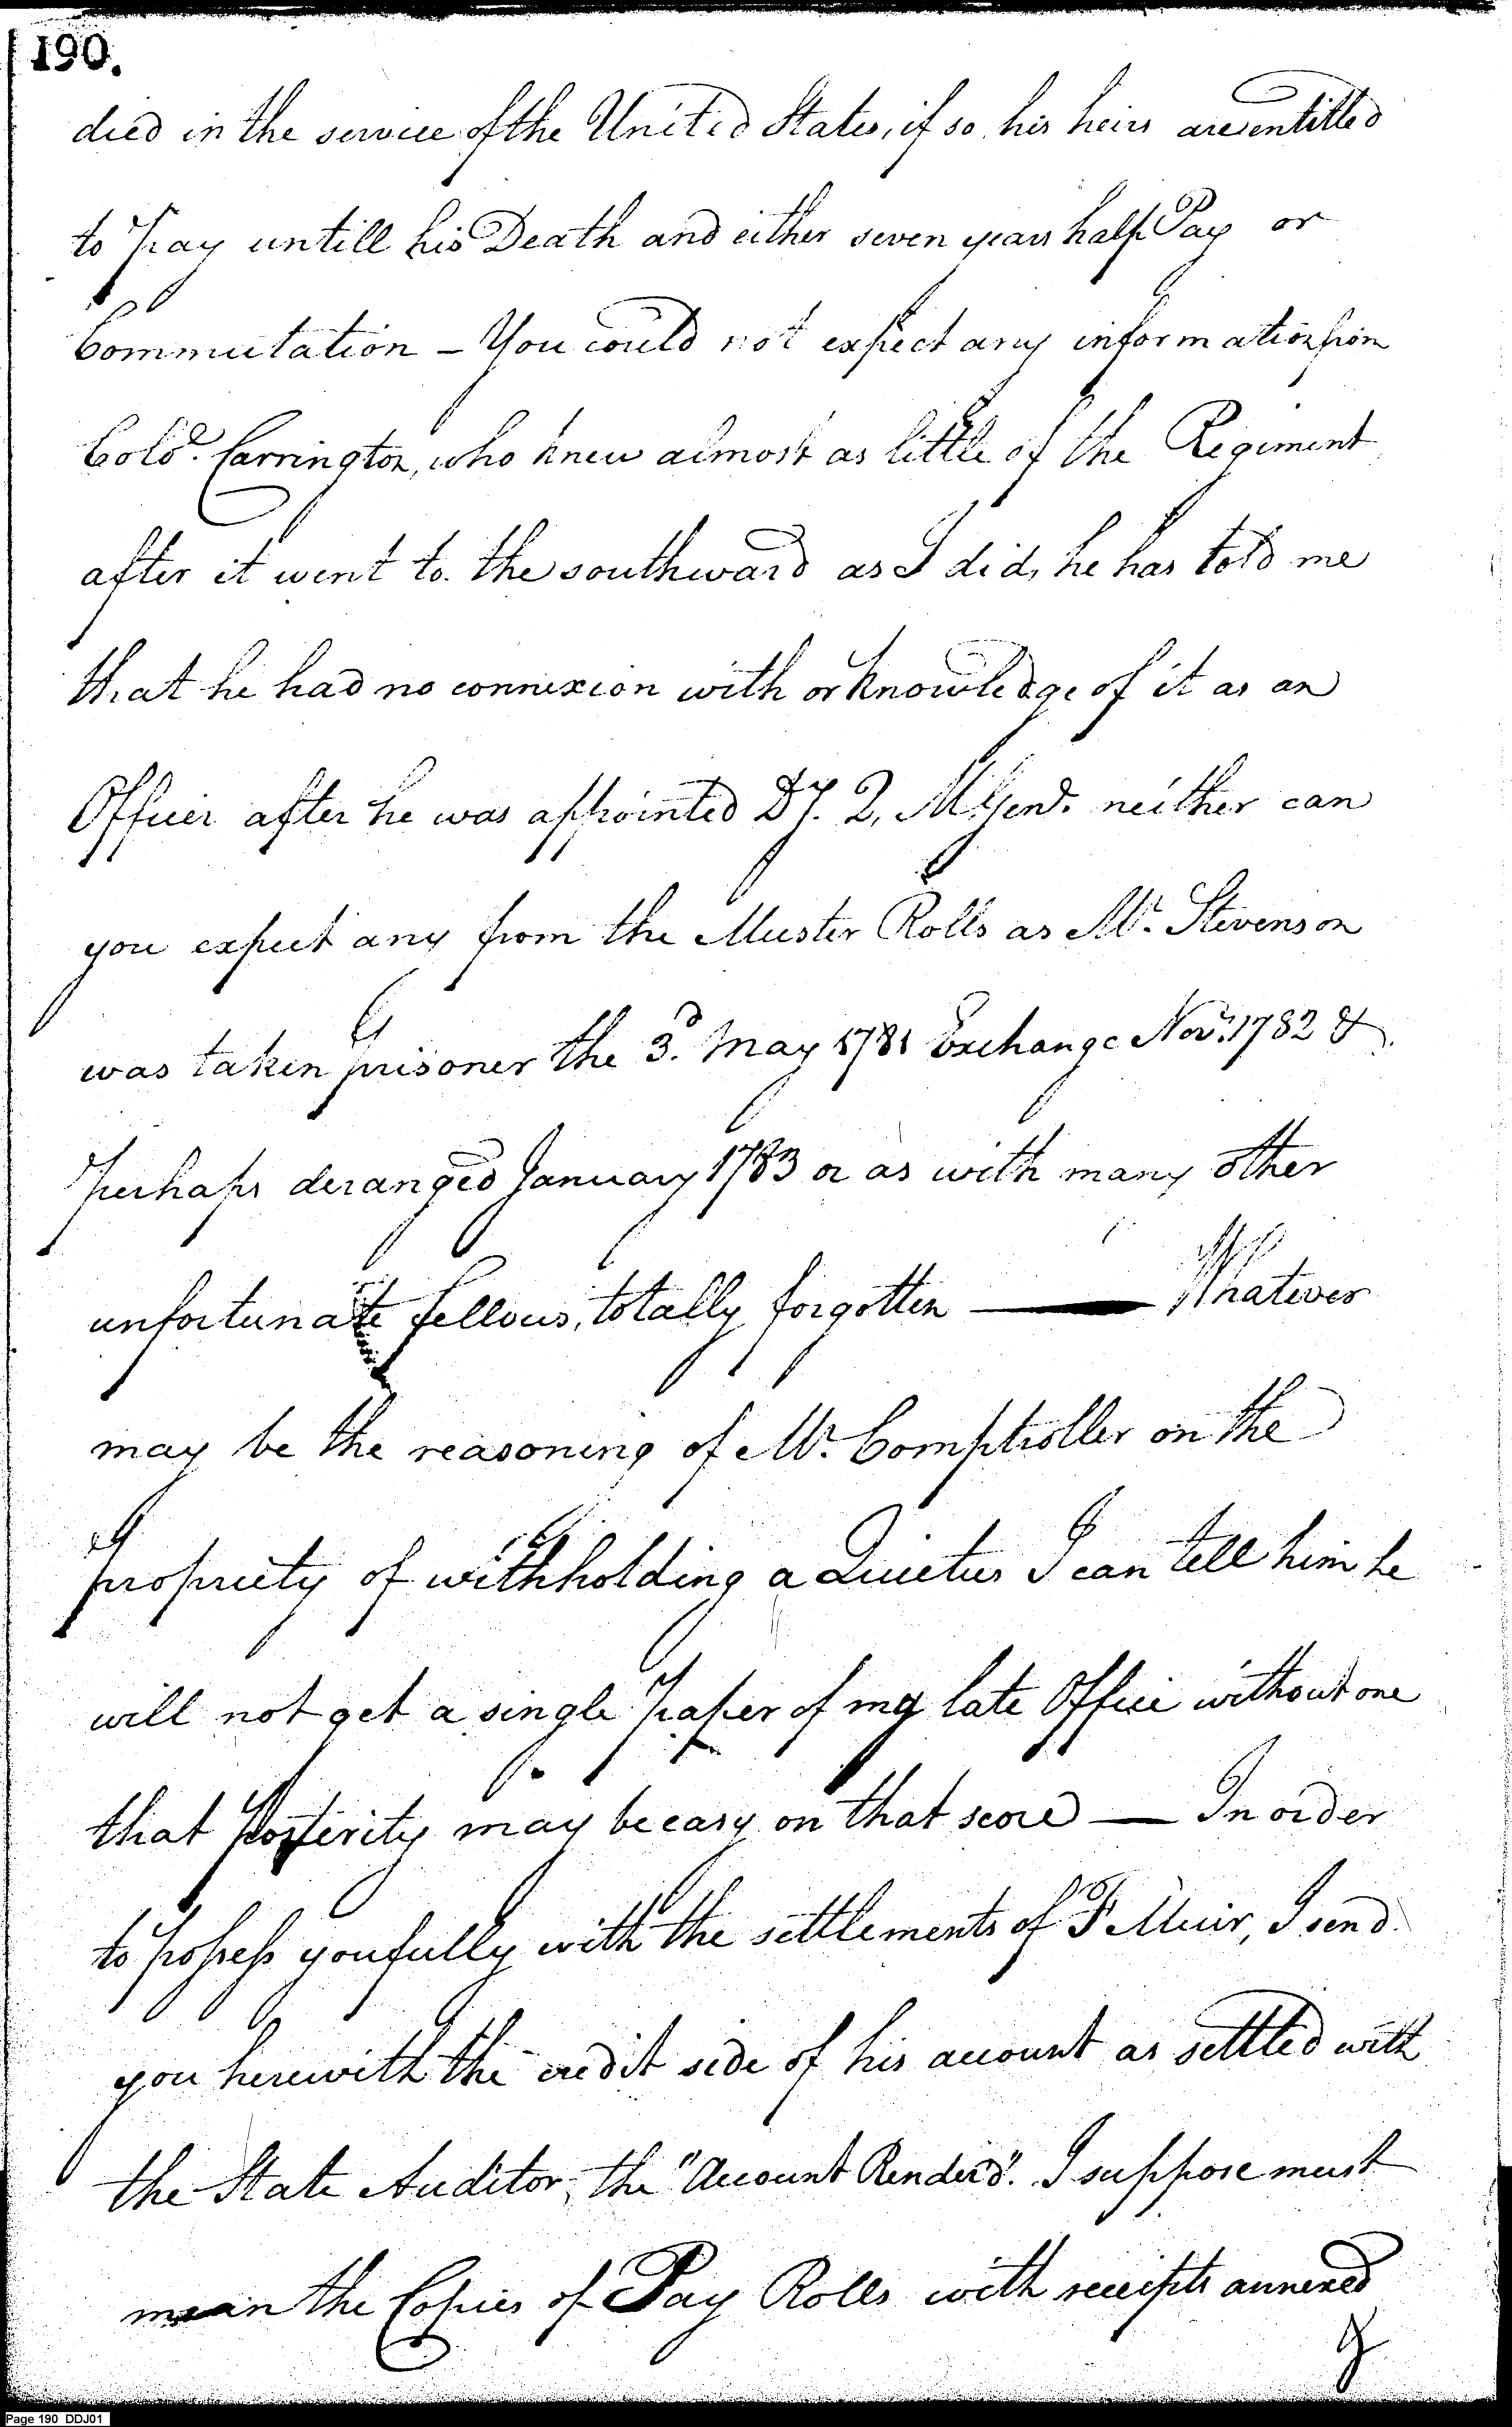 190.
died in the service of the United States, if so his heirs are entitled
to Pay untill his Death and either seven years half Pay or
Commutation – You could not expect any information from
Colo. Carrington, who knew almost as little of the Regiment
after it went to the southward as I did, he has told me
that he had no connexion with or knowledge of it as an
Officer after he was appointed Dy. Q, M, Genl. neither can
you expect any from the Muster Rolls as Mr. Stevenson
was taken prisoner the 3d. May 1781 Exchange Novr. 1782 &
perhaps deranged January 1783 or as with many other
unfortunate fellows, totally forgotten — Whatever
may be the reasoning of Mr. Comptroller on the
propriety of withholding a Quietus I can tell him he
will not get a single paper of my late Office without one
that Posterity may be easy on that score — In order
to possess you fully with the settlements of F Muir, I send
you herewith the credit side of his account as settled with
the State Auditor, the "Account Render'd". I suppose must
mean the Copies of Pay Rolls with receipts annexed
&
Page 190 DDJ01